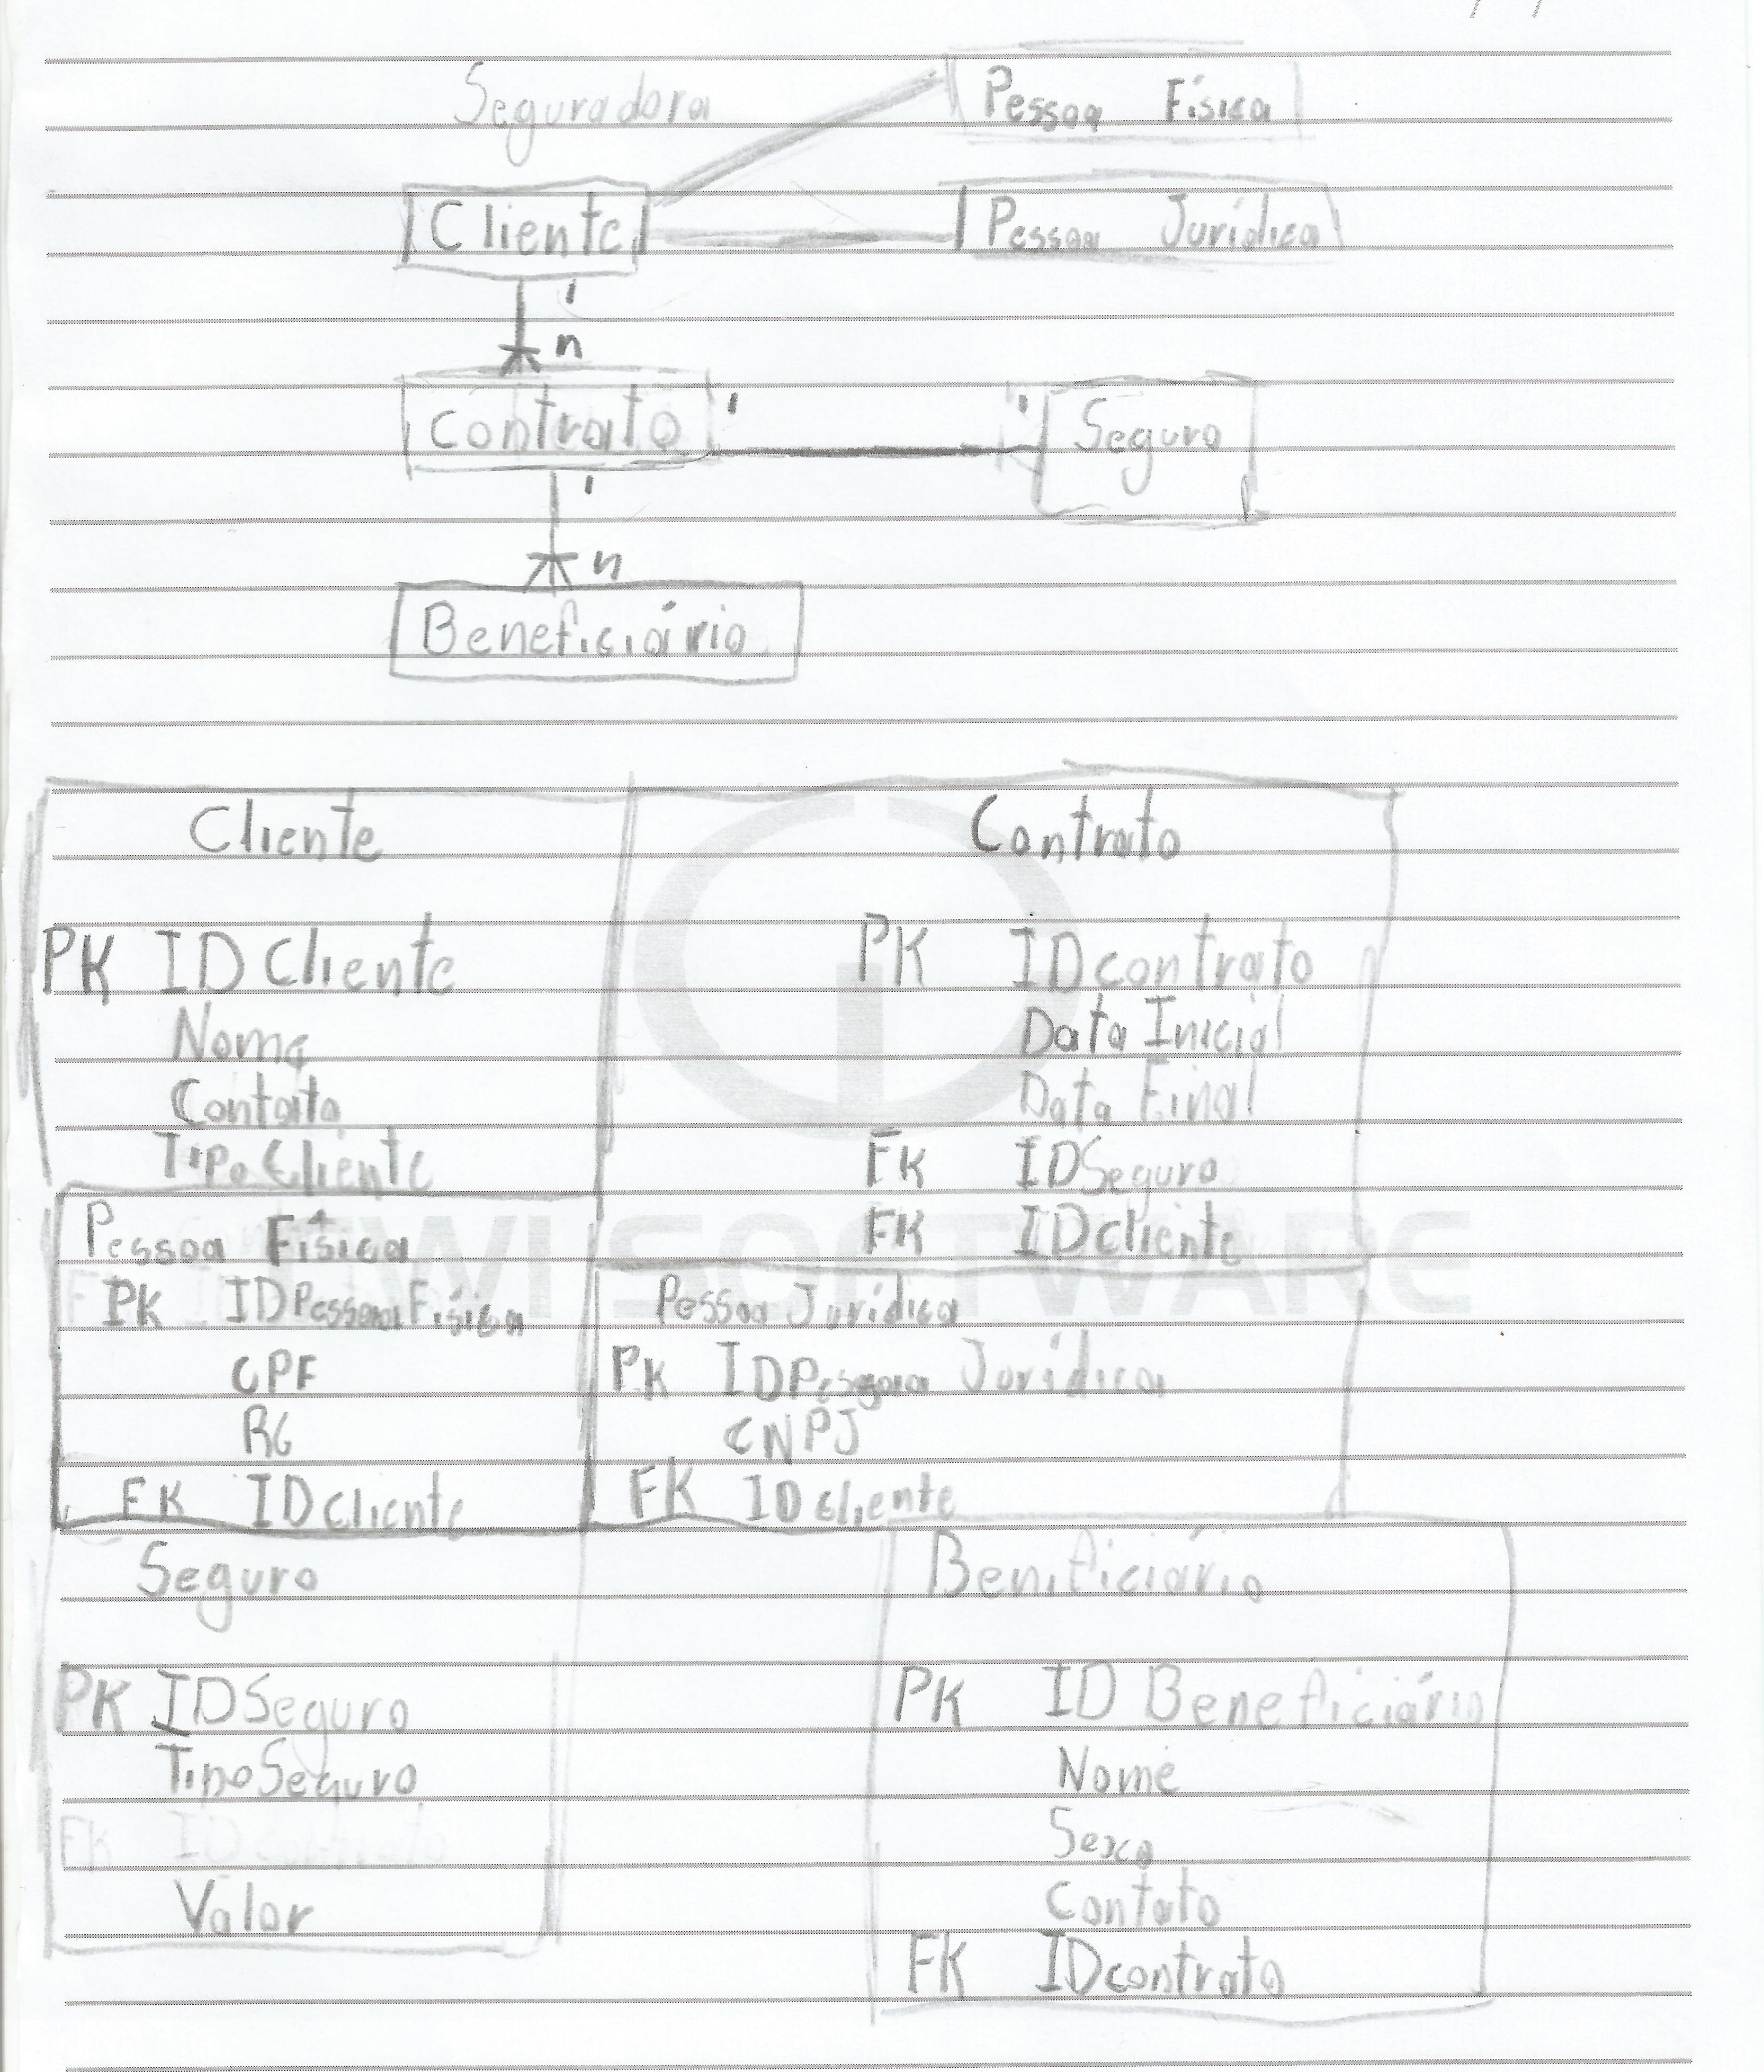 Seguradora
Pessoa Física
Cliente
Pessoa Jurídica
1
n
Contrato
1
1
Seguro
1
n
Beneficiário
Cliente
PK IDCliente
Nome
Contato
TipoCliente
Contrato
PK IDcontrato
Data Inicial
Data Final
FK IDSeguro
FK IDcliente
Pessoa Física
PK IDPessoaFísica
CPF
RG
FK IDcliente
Pessoa Jurídica
PK IDPessoa Jurídica
CNPJ
FK IDcliente
Seguro
PK IDSeguro
TipoSeguro
FK IDcontrato
Valor
Benificiário
PK ID Beneficiário
Nome
Sexo
Contato
FK IDcontrato